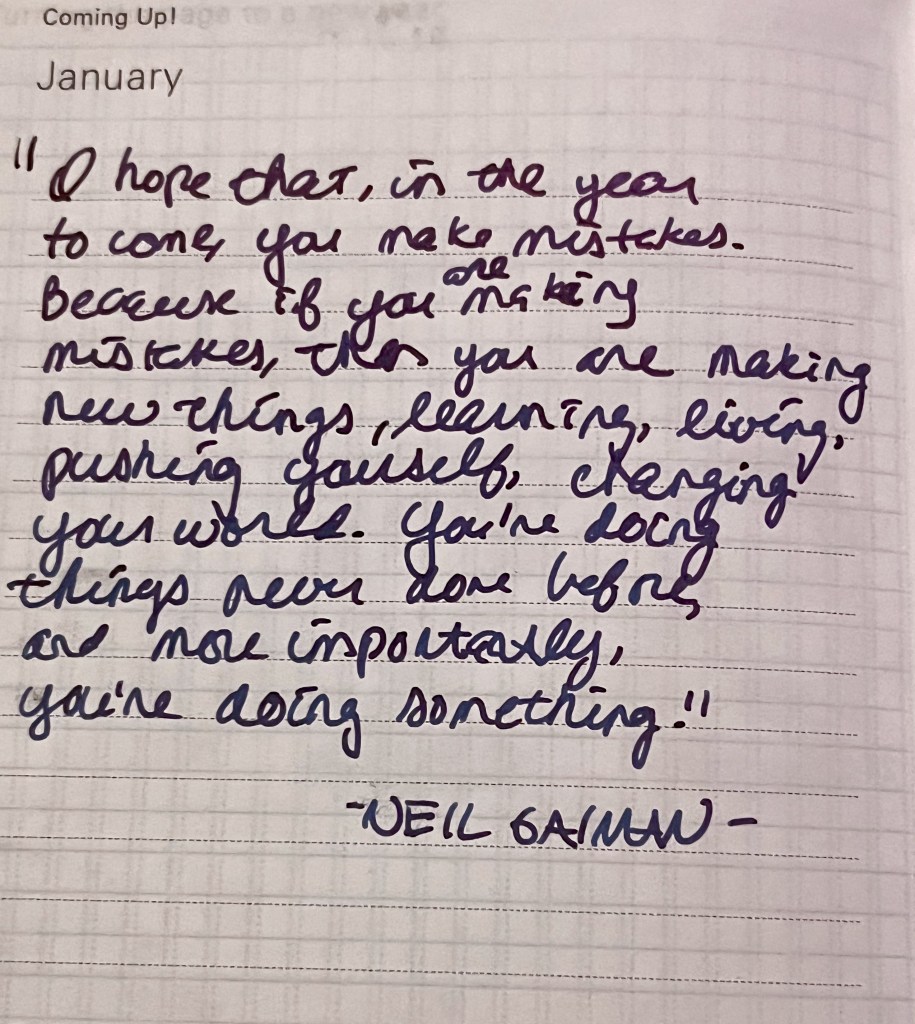 Coming Up!
January
"I hope that, in the year
to come, you make mistakes.
Because if you are making
mistakes, then you are making
new things, learning, living,
pushing yourself, changing
your world. You're doing
things never done before,
and more importantly,
you're doing something."
-NEIL GAIMAN-